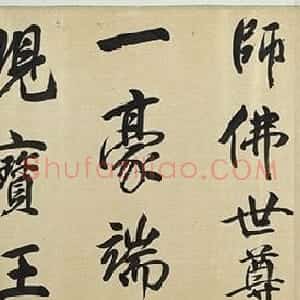 師佛世尊
一豪端
現寶王
shufazhao.COM